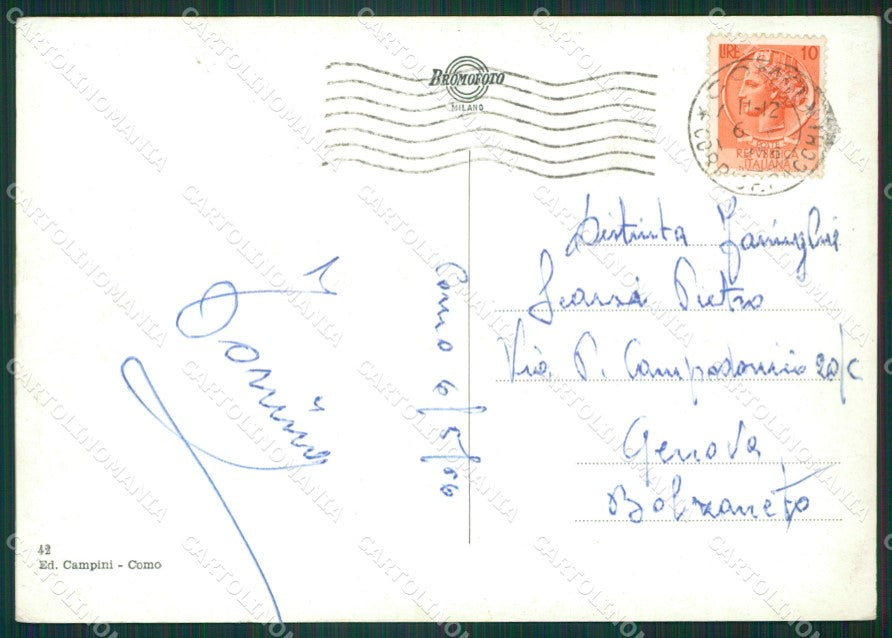 BROMOFOTO
MILANO
LIRE 10
11-12
6
POSTE
REPVBBLICA
ITALIANA
Distinta Famiglia
Pietro
Via P. Campodonico 20/c
Genova
Bolzaneto
Como 6/5/66
42
Ed. Campini - Como
CARTOLINOMANIA